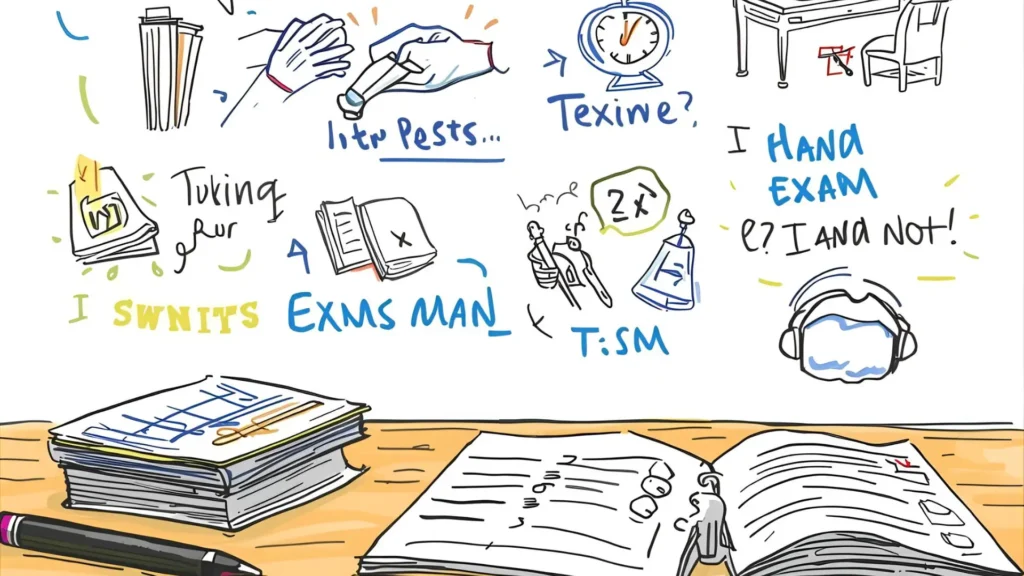 Pests...
Texine?
I HAND
EXAM
e? I AND NOT!
Tuking
for
2x
I SWNITS
EXMS MAN
x
TiSM